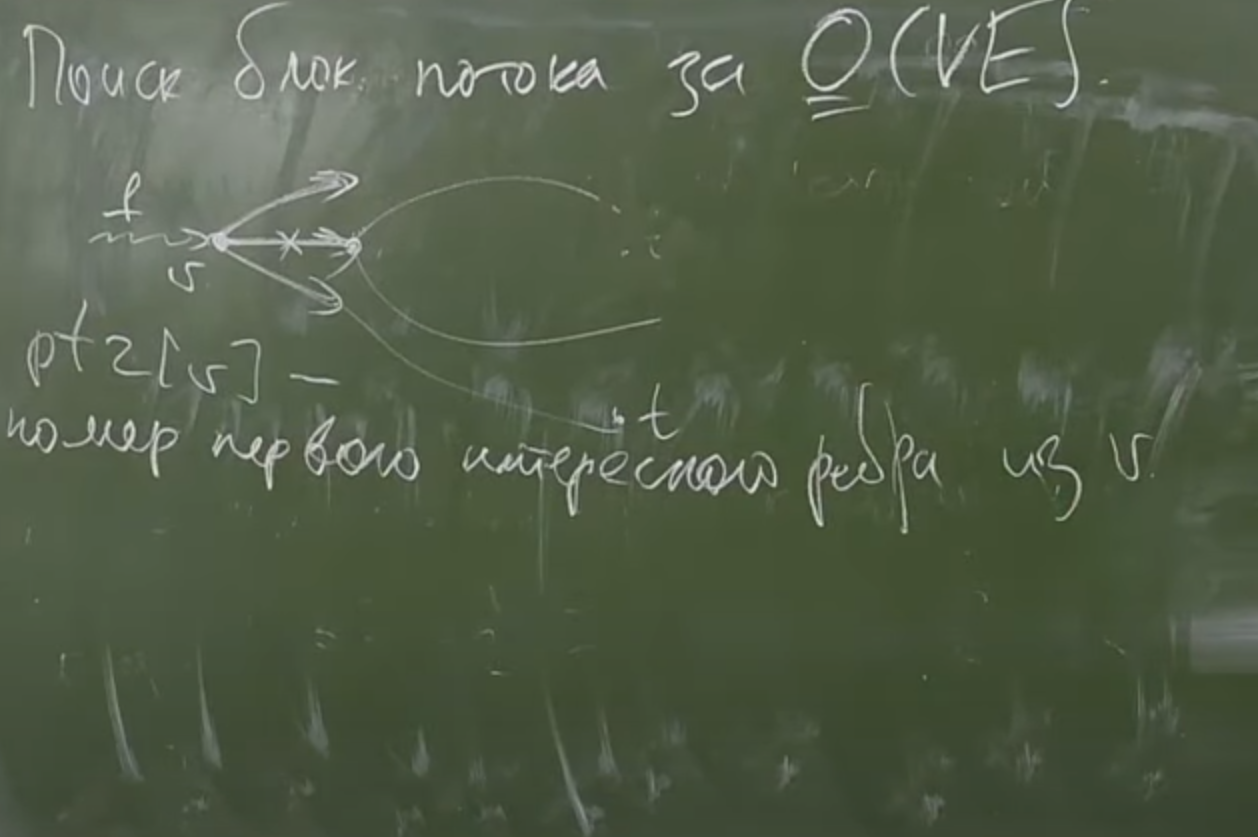 Поиск блок. потока за O(VE).
f
v
ptr[v] –
t
номер первого интересного ребра из v.